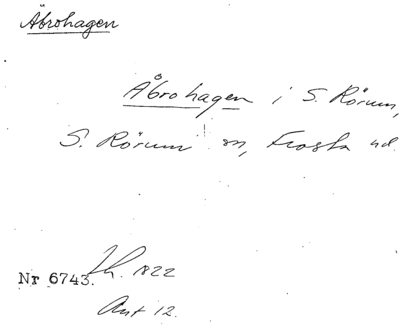 Åbrohagen
Åbrohagen i S. Rörum,
S. Rörum sn, Frosta hd.
Nr 6743. Lh. 1822
Akt 12.